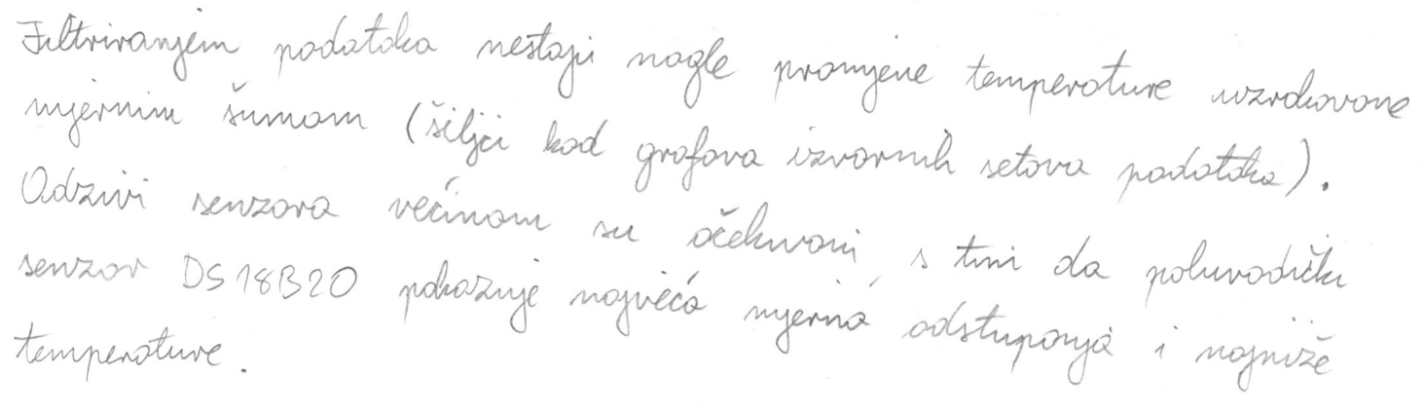 Filtriranjem podataka nestaju nagle promjene temperature uzrokovane
mjernim šumom (šiljci kod grafova izvornih setova podataka).
Odzivi senzora većinom su očekivani, s tim da poluvodički
senzor DS18B20 pokazuje najveća mjerna odstupanja i najniže
temperature.